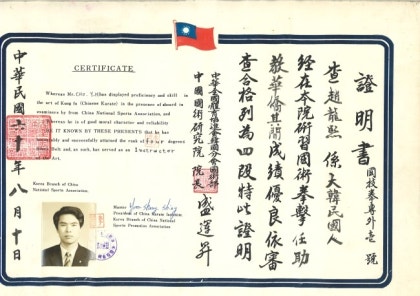 證明書
國技拳專外壱號
查趙龍熙 係大韓民國人
經在本院術習國術拳擊任助
教華僑其間成績優良依審
查合格列為四段特此證明
中國國術研究院 院長 盛運昇
中華民國六十年八月十日
CERTIFICATE
Whereas Mr. displayed proficiency and skill in
the art of Kung fu (Chinese Karate) in the presence of aboard in
examinere by from China National Sports Association, and
Whereas he is of good moral character and reliability
IT KNOWN BY THESE PRESENTS that he has
and successfully attained the rank of four degree
and, as such, has served as an Instructor
Art.
Korea Branch of China
National Sports Association.
Master
President of China
Korea Branch of China National
Sports Promotion Association.